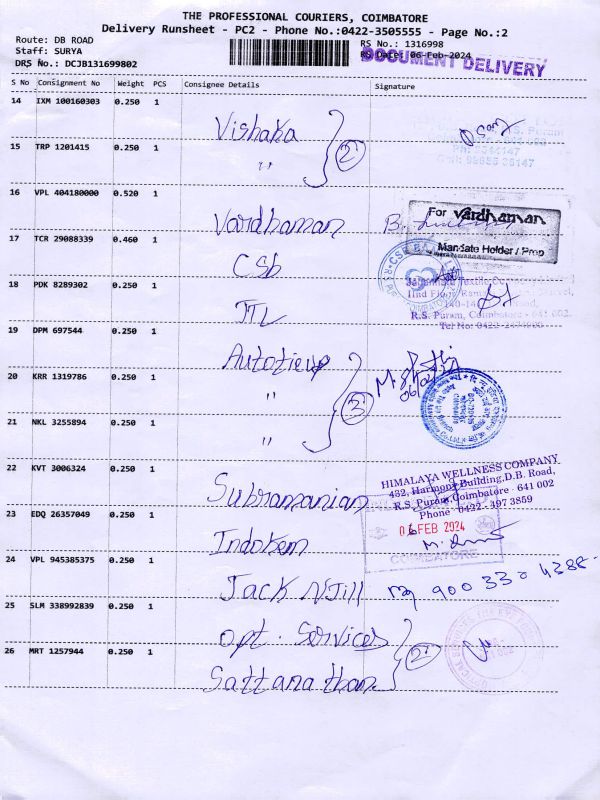 THE PROFESSIONAL COURIERS, COIMBATORE
Delivery Runsheet - PC2 - Phone No.:0422-3505555 - Page No.:2
Route: DB ROAD
Staff: SURYA
DRS No.: DCJB131699802
RS No.: 1316998
RS Date: 06-Feb-2024
DOCUMENT DELIVERY
S No Consignment No Weight PCS Consignee Details Signature
14 IXM 100160303 0.250 1
Vishaka
15 TRP 1201415 0.250 1
" 2
16 VPL 404180000 0.520 1
Vardhaman
For Vardhaman
Mandate Holder / Prop
17 TCR 29088339 0.460 1
CSb
18 PDK 8289302 0.250 1
JTL
R.S. Puram, Coimbatore - 641 002.
19 DPM 697544 0.250 1
20 KRR 1319786 0.250 1
" 3
21 NKL 3255894 0.250 1
"
22 KVT 3006324 0.250 1
Subramanian
HIMALAYA WELLNESS COMPANY
432, Harmony Building, D.B. Road,
R.S. Puram, Coimbatore - 641 002
Phone : 0422 - 397 3859
06 FEB 2024
COIMBATORE
23 EDQ 26357049 0.250 1
Indokem
24 VPL 945385375 0.250 1
Jack N Jill
900 330 4388
25 SLM 338992839 0.250 1
opt. Services
26 MRT 1257944 0.250 1
Sattanathan 2